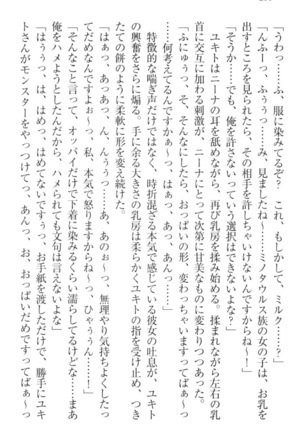 「うわっ……ふ、服に染みてるぞ？　これ、もしかして、ミルク……？」
「んふーっ、ふぅぅっ……み、見ましたね～……ミノタウルス族の女の子は、お乳を
出すところを見られたら、その相手を許しちゃいけないんですからね～！」
「そうか……でも、俺を許さないっていう選択はできないよな？」
ユキトはニーナの耳を舐めながら、再び乳房を揉み始める。揉まれながら左右の乳
首に交互に加わる刺激が、ニーナにとって次第に甘美なものに変わりつつあった。
「ふにゅぅっ、そ、そんなにしたら、おっぱいの形、変わっちゃいますってばぁ～
……何考えてるんですかぁ～っ、はぁっ、あっ……」
特徴的な喘ぎ声だけではなく、時折混ざる本気で感じている彼女の吐息が、ユキト
の興奮をさらに煽る。手に余る大きさの乳房は柔らかくユキトの指を受け止め、つき
たての餅のように柔軟に形を変え続けた。
「はぁっ、あっあっ、ん、んぅぅっ……あ、あのぉ～っ……無理やり気持ちよくしたっ
てだめなんですよぉ～っ、私、本気で怒りますからね～っ、ひゃぅぅんっ！」
「そんなこと言って、オッパイだけで下着に染みるくらい濡らしてるけどな……まあ
俺をハメようとしたんだから、ハメられても文句は言えないよな」
「はぅぅっ、は、はめっ……はめてないですってばぁ～、お手紙を渡しただけで、勝手にユキ
トさんがモンスターをやっつけてっ、あんっ。お、おっぱいだめですってばぁ～っ